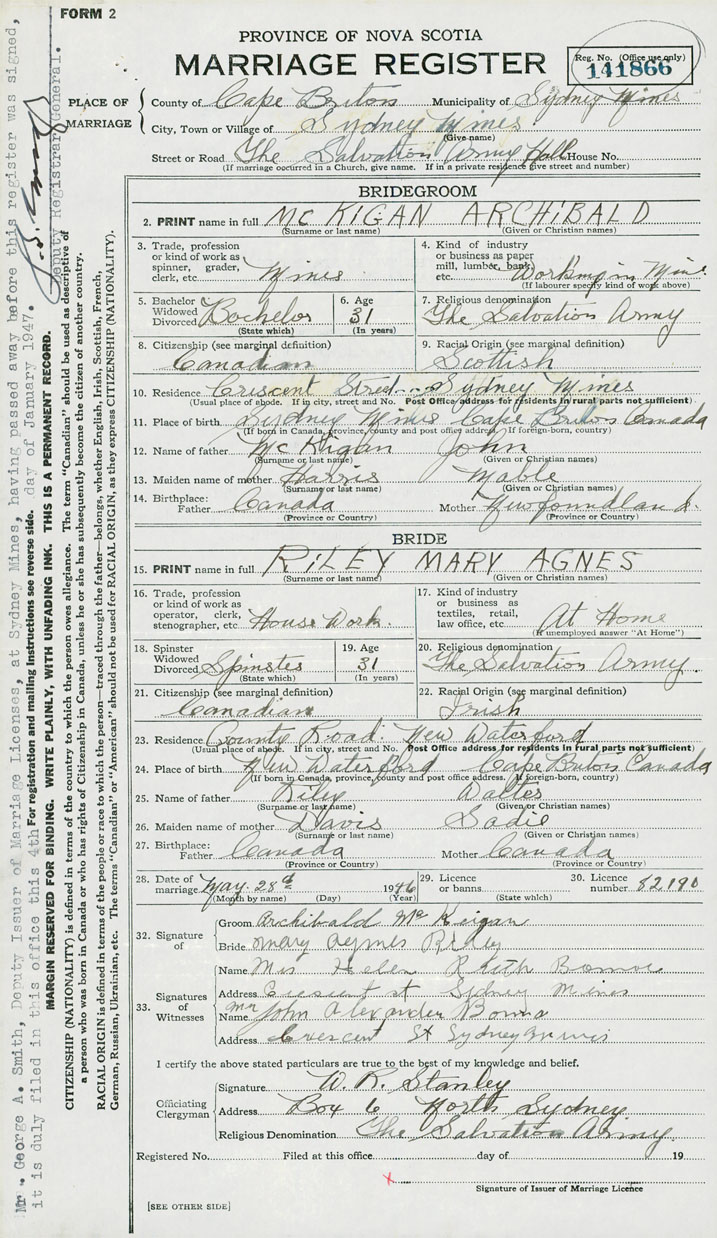 FORM 2
PROVINCE OF NOVA SCOTIA
MARRIAGE REGISTER
Reg. No. (Office use only)
141866
PLACE OF MARRIAGE
County of Cape Breton Municipality of Sydney Mines
City, Town or Village of Sydney Mines
(Give name)
Street or Road The Salvation Army Hall House No.
(If marriage occurred in a Church, give name. If in a private residence give street and number)
BRIDEGROOM
2. PRINT name in full MC KIGAN ARCHIBALD
(Surname or last name) (Given or Christian names)
3. Trade, profession or kind of work as spinner, grader, clerk, etc. Mines
4. Kind of industry or business as paper mill, lumber, bank, etc. Working in Mine
(If labourer specify kind of work above)
5. Bachelor Widowed Divorced Bachelor
(State which)
6. Age 31
(In years)
7. Religious denomination The Salvation Army
8. Citizenship (see marginal definition) Canadian
9. Racial Origin (see marginal definition) Scottish
10. Residence Crescent Street Sydney Mines
(Usual place of abode. If in city, street and No. Post Office address for residents in rural parts not sufficient)
11. Place of birth Sydney Mines Cape Breton Canada
(If born in Canada, province, county and post office address. If foreign-born, country)
12. Name of father Mc Kigan John
(Surname or last name) (Given or Christian names)
13. Maiden name of mother Harris Mable
(Surname or last name) (Given or Christian names)
14. Birthplace: Father Canada Mother Newfoundland.
(Province or Country) (Province or Country)
BRIDE
15. PRINT name in full RILEY MARY AGNES
(Surname or last name) (Given or Christian names)
16. Trade, profession or kind of work as operator, clerk, stenographer, etc. House Work.
17. Kind of industry or business as textiles, retail, law office, etc. At Home
(If unemployed answer "At Home")
18. Spinster Widowed Divorced Spinster
(State which)
19. Age 31
(In years)
20. Religious denomination The Salvation Army.
21. Citizenship (see marginal definition) Canadian
22. Racial Origin (see marginal definition) Irish
23. Residence County Road. New Waterford
(Usual place of abode. If in city, street and No. Post Office address for residents in rural parts not sufficient)
24. Place of birth New Waterford Cape Breton Canada
(If born in Canada, province, county and post office address. If foreign-born, country)
25. Name of father Riley Walter
(Surname or last name) (Given or Christian names)
26. Maiden name of mother Davis Sadie
(Surname or last name) (Given or Christian names)
27. Birthplace: Father Canada Mother Canada
(Province or Country) (Province or Country)
28. Date of marriage May 28th 1946
(Month by name) (Day) (Year)
29. Licence or banns
(State which)
30. Licence number 82190
32. Signature of
Groom Archibald Mc Keigan
Bride Mary Agnes Riley
33. Signatures of Witnesses
Name Mrs Helen
Address Crescent st Sydney Mines
Name John Alexander
Address Crescent St Sydney Mines
I certify the above stated particulars are true to the best of my knowledge and belief.
Officiating Clergyman
Signature W. R. Stanley
Address Box 6 North Sydney
Religious Denomination The Salvation Army.
Registered No. Filed at this office day of 19
X
Signature of Issuer of Marriage Licence
[SEE OTHER SIDE]
Mr. George A. Smith, Deputy Issuer of Marriage Licenses, at Sydney Mines, having passed away before this register was signed,
it is duly filed in this office this 4th day of January 1947.
Deputy Registrar General.
For registration and mailing instructions see reverse side.
MARGIN RESERVED FOR BINDING. WRITE PLAINLY, WITH UNFADING INK. THIS IS A PERMANENT RECORD.
CITIZENSHIP (NATIONALITY) is defined in terms of the country to which the person owes allegiance. The term "Canadian" should be used as descriptive of
a person who was born in Canada or who has rights of Citizenship in Canada, unless he or she has subsequently become the citizen of another country.
RACIAL ORIGIN is defined in terms of the people or race to which the person—traced through the father—belongs, whether English, Irish, Scottish, French,
German, Russian, Ukrainian, etc. The terms "Canadian" or "American" should not be used for RACIAL ORIGIN, as they express CITIZENSHIP (NATIONALITY).